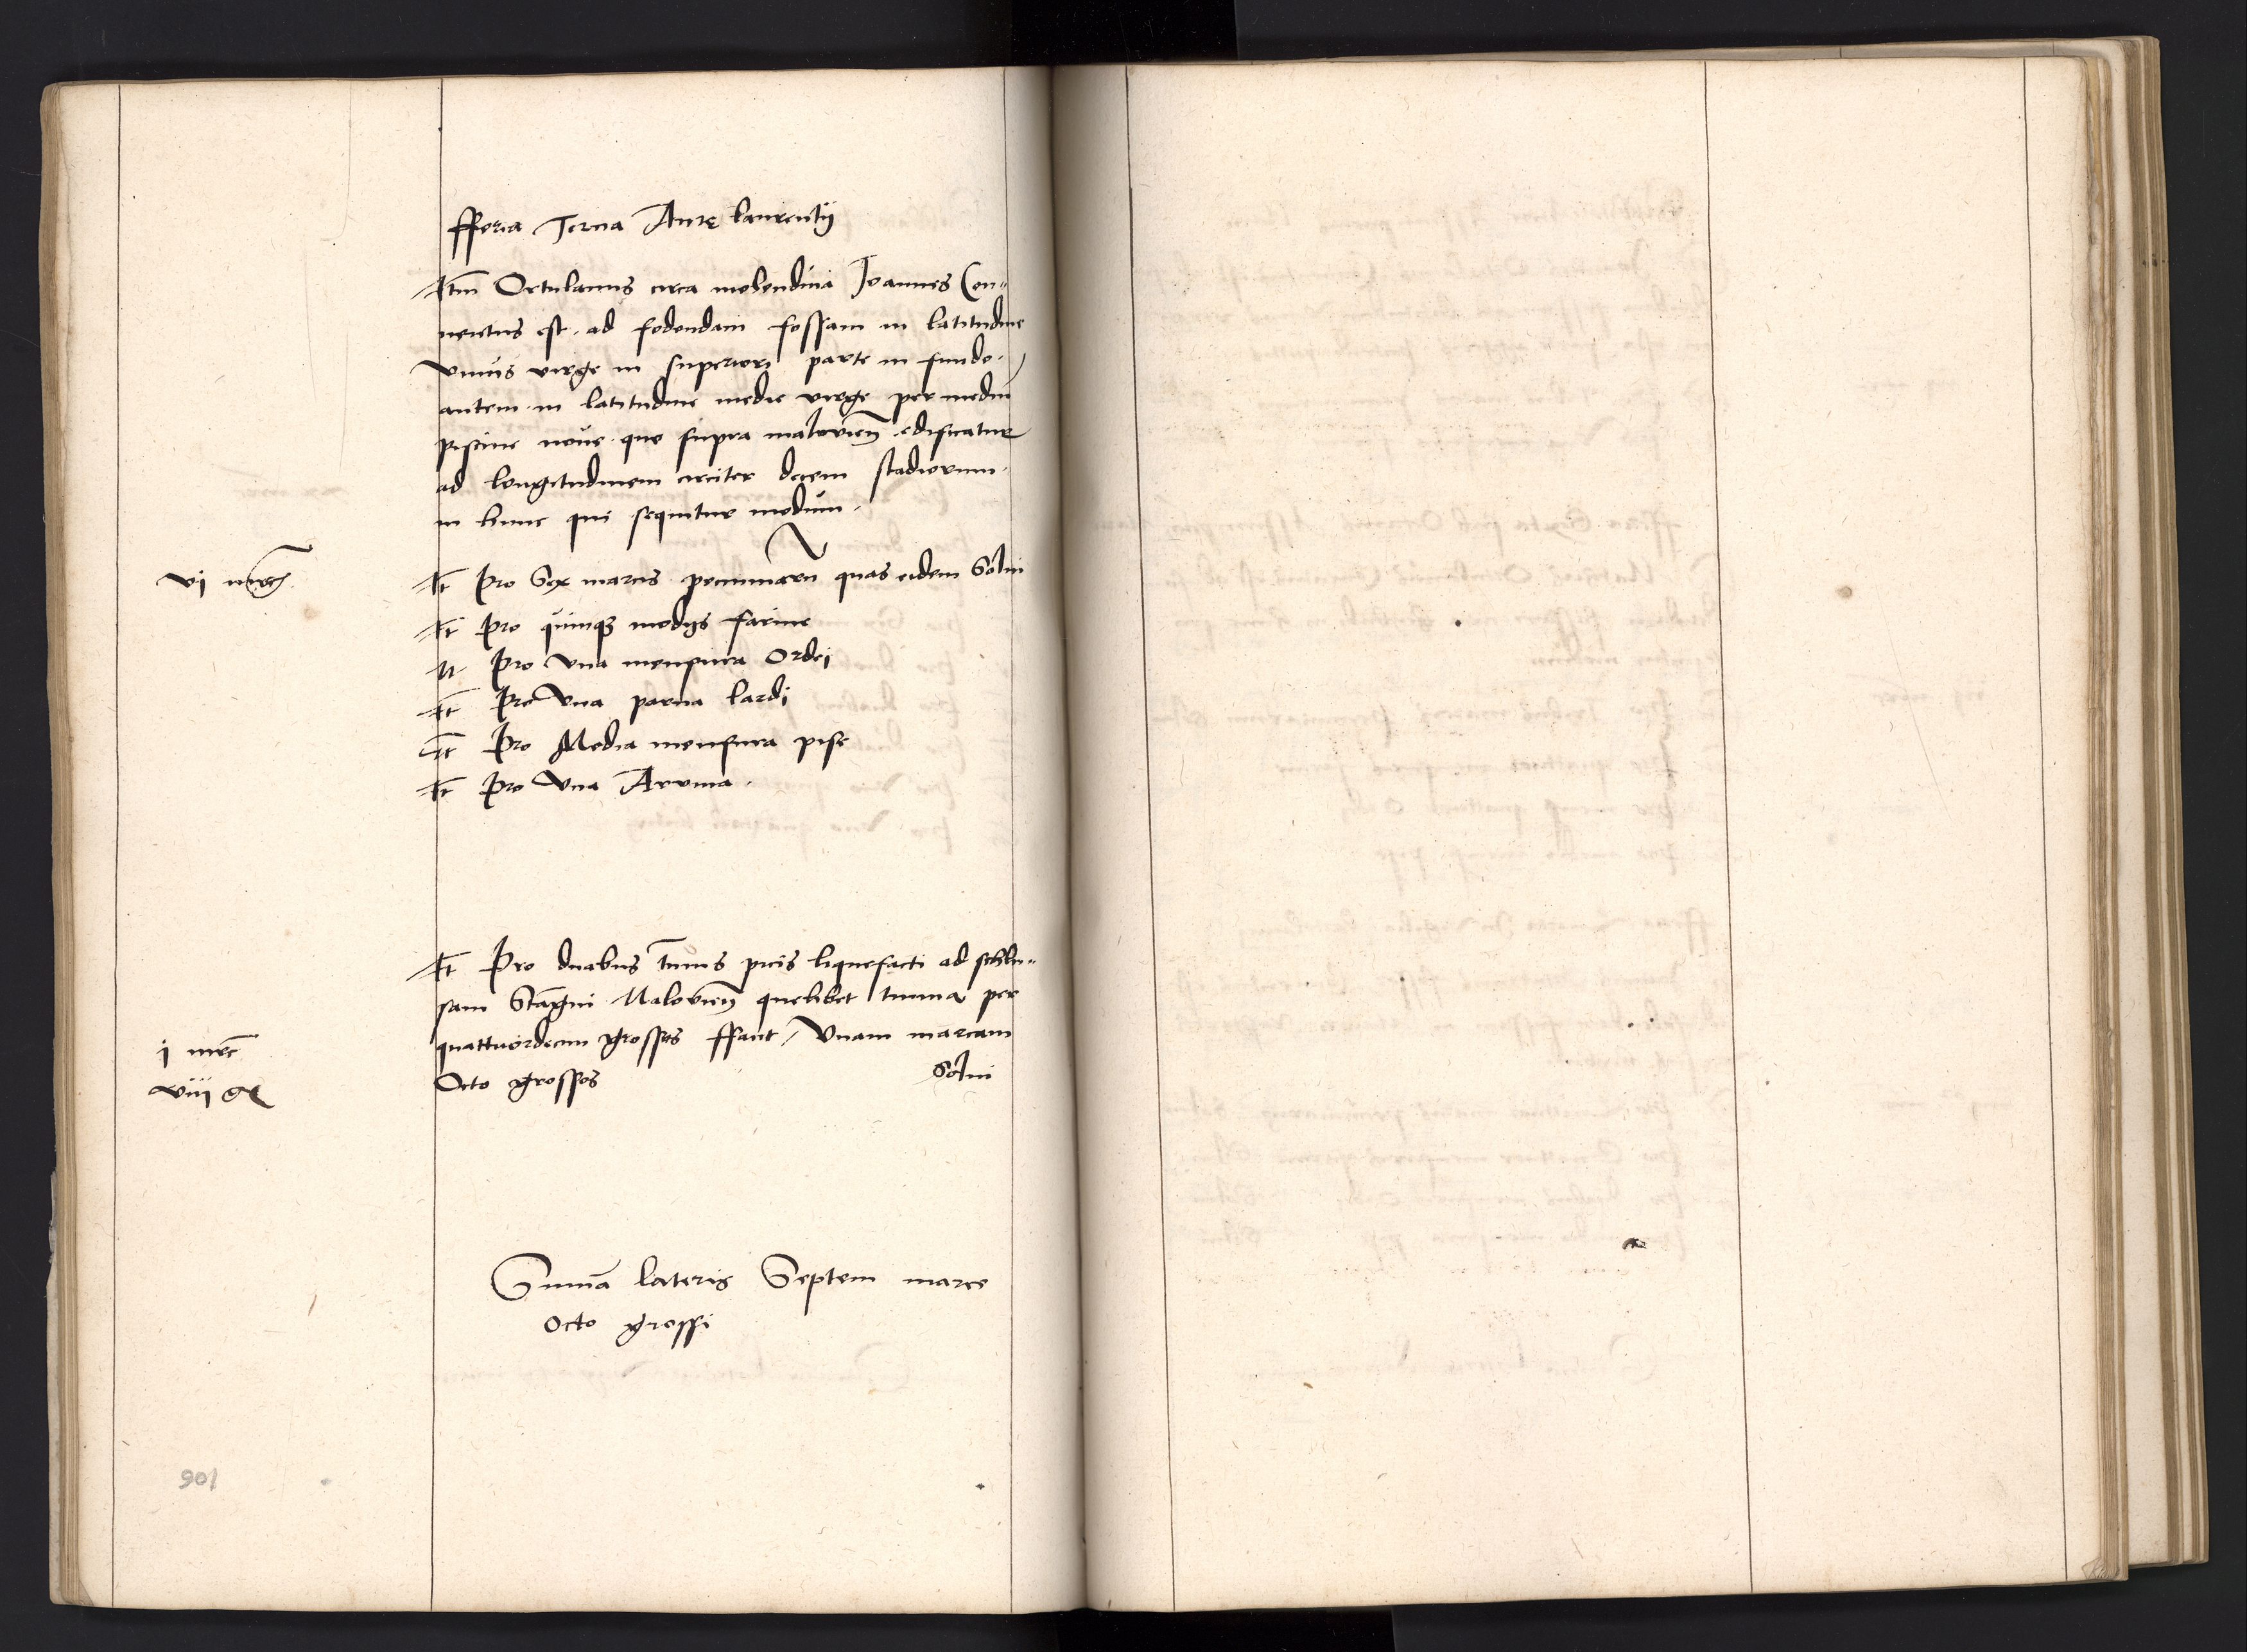 fferia Tercia Ante laurentij
Itm̄ Ortulanus circa molendina Joannes Con„
uentus est . ad fodendam fossam in latitudine
vnius virge in superiori parte in fundo .
autem in latitudine medie virge per mediū
piscine noue que supra maloviens̄ edificatur
ad longitudinem circiter decem stadiorum
in hunc qui sequitur modum .
vi mrcs
It̄ pro Sex marcis pecuniarū quas eidem Solui
It̄ pro quinqȝ modijs farine
It pro vna mensura Ordei
It̄ Pro Vna parna lardi
It̄ Pro Media mensura pise
It̄ pro Vna Arvina .
It̄ Pro duabus tunnis picis liquefacti ad schlu„
sam Stagni Maloviens̄ quelibet tunna per
quattuordecim grossos ffaut / Vnam marcam
Octo grossos Solui
i mrc̄
viii gr
Sum̄a lateris Septem marce
Octo grossi
106